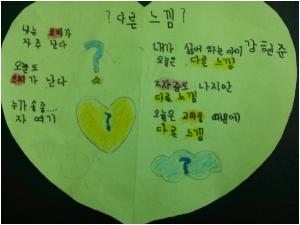 ?다른 느낌?
나는 코피가
자주 난다
?
오늘도
코피가 난다
누가 송송....
자 여기
?
내가 싫어 하는 아이 강현준
오늘은 다른 느낌
짜증도 나지만
다른 느낌
오늘은 고마움 때문에
다른 느낌
?